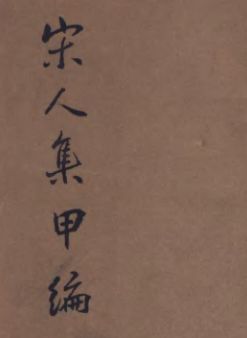 宋人集甲编